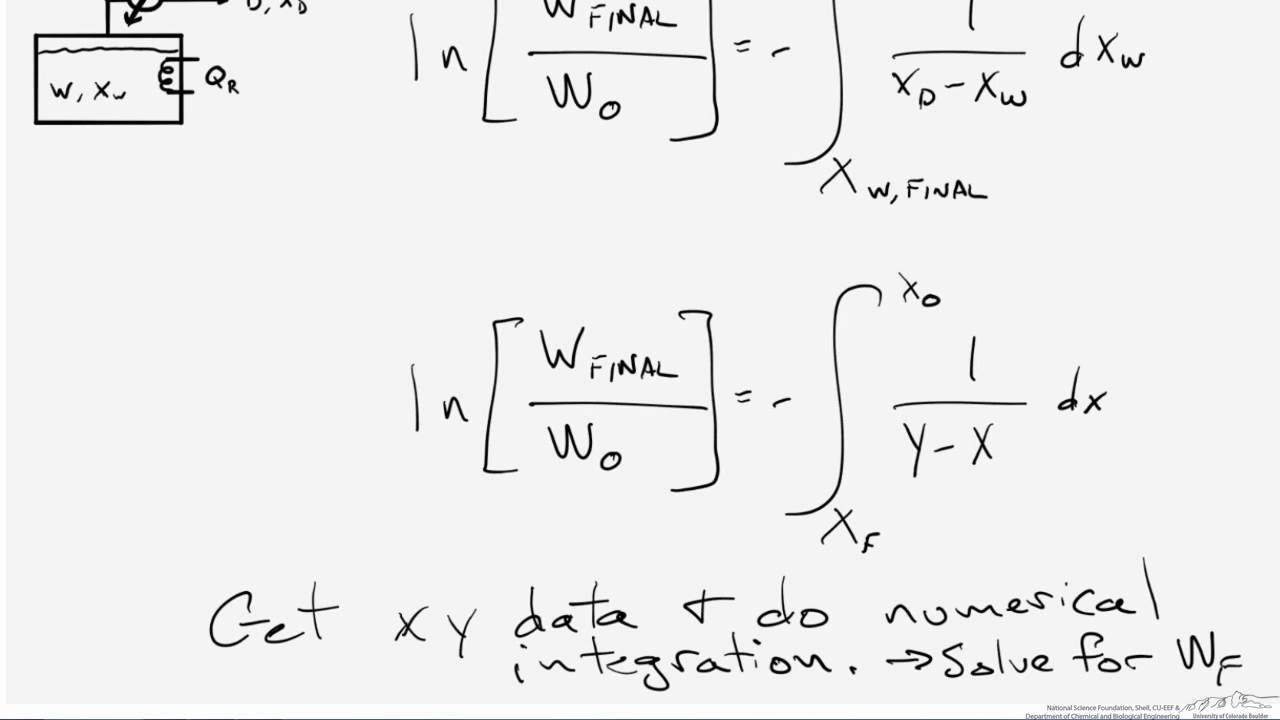 D, X_D
W, X_W Q_R
ln [ W_FINAL / W_O ] = - ∫_{X_W, FINAL} 1 / (X_D - X_W) dX_W
ln [ W_FINAL / W_O ] = - ∫_{X_F}^{X_O} 1 / (Y - X) dx
Get xy data + do numerical
integration. → Solve for W_F
National Science Foundation, Shell, CU-EEF &
Department of Chemical and Biological Engineering
University of Colorado Boulder